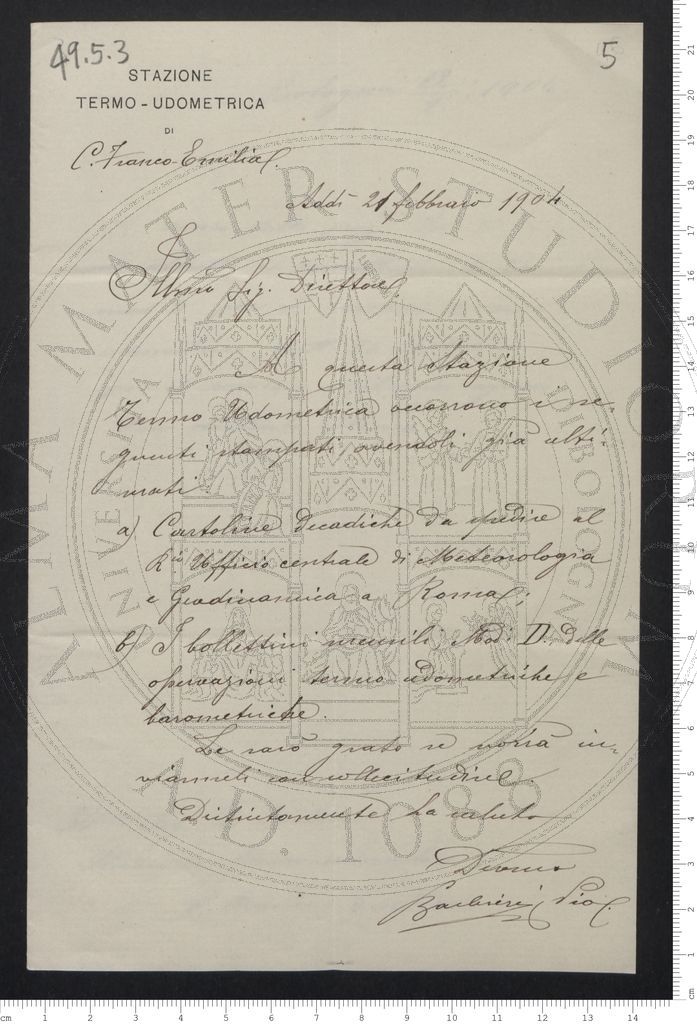 49.5.3
5
STAZIONE
TERMO-UDOMETRICA
DI
C. Franco-Emilia
Addì 21 febbraio 1904
Illmo Sig. Direttore,
A questa Stazione
Termo Udometrica occorrono i se-
guenti stampati, avendoli già ulti-
mati:
a) Cartoline decadiche da spedire al
R.io Ufficio centrale di Meteorologia
e Geodinamica a Roma;
b) I bollettini mensili Mod: D. delle
osservazioni termo-udometriche e
barometriche.
Le sarò grato se vorrà in-
viarmeli con sollecitudine.
Distintamente La saluto
Devmo
Barbieri Pio
ALMA MATER STUDIORUM
UNIVERSITÀ DI BOLOGNA
A.D. 1088
cm 1 2 3 4 5 6 7 8 9 10 11 12 13 14
cm 1 2 3 4 5 6 7 8 9 10 11 12 13 14 15 16 17 18 19 20 21